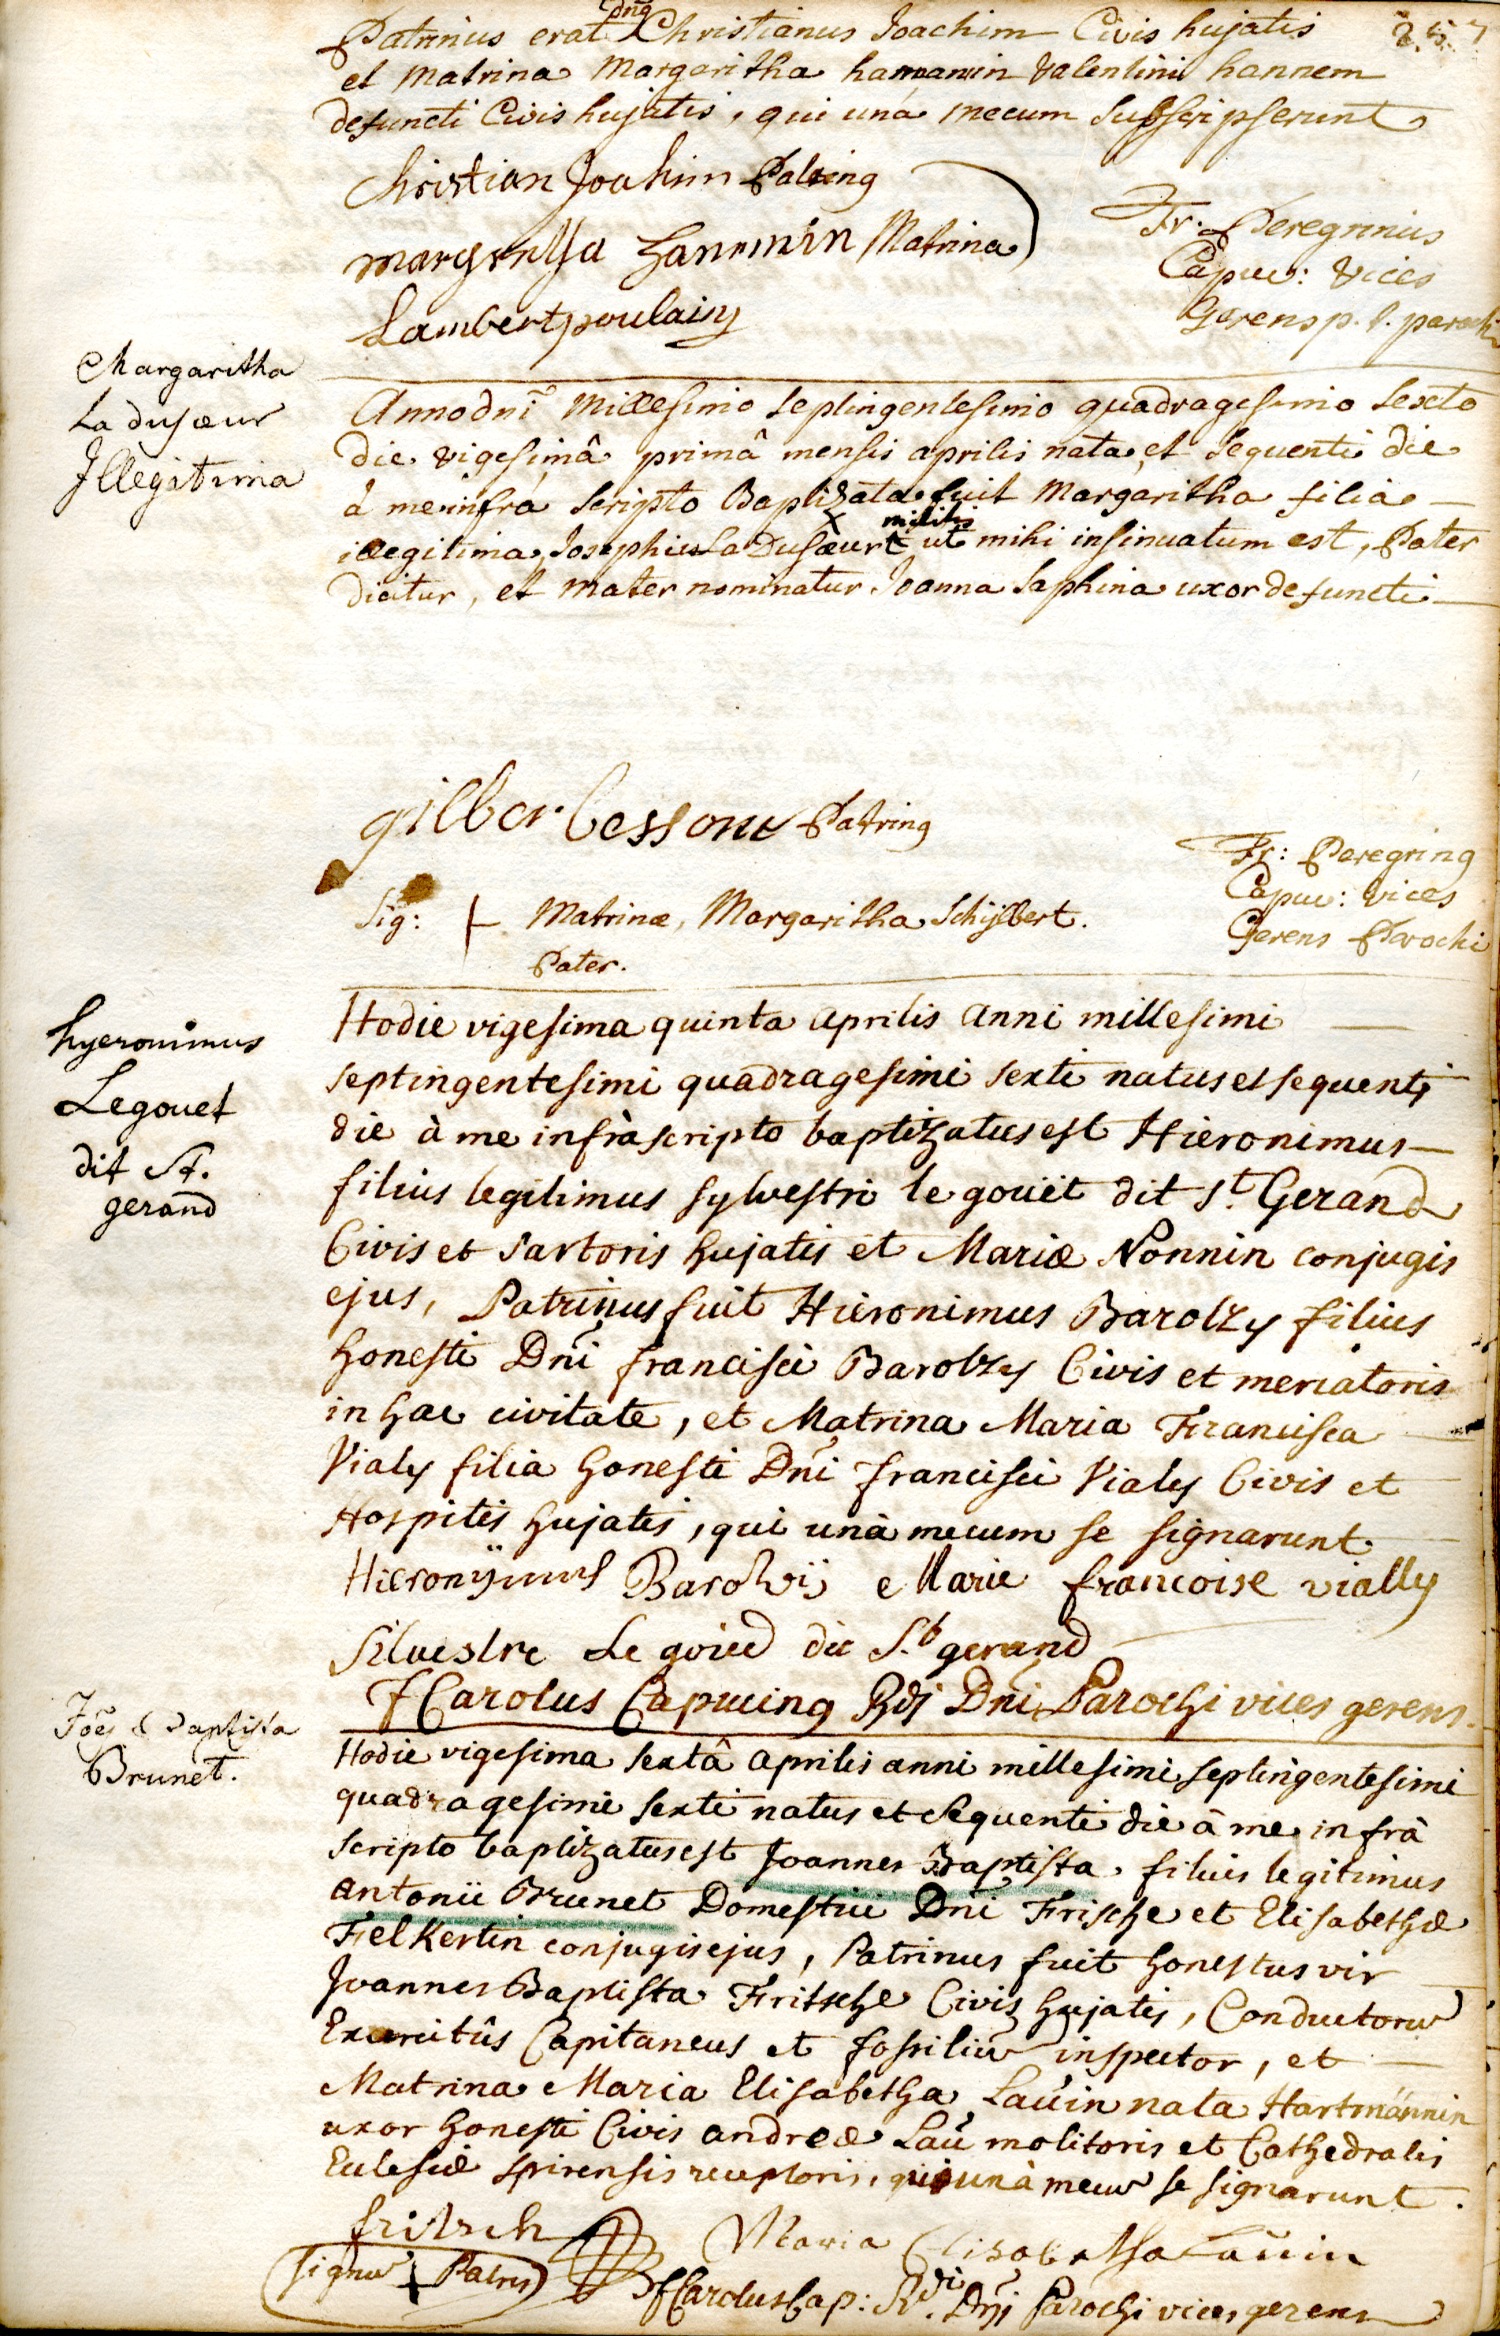 257
dnq
Patrinus erat Christianus Joachim Civis hujatis
et Matrina Margaritha hannanin Valentini hannem
defuncti Civis hujatis, qui una mecum Subscripserunt
Christian Joachim Patring
margretha hanmin Matrina
Lambert poulain
Fr: Peregrinus
Capuc: Vices
Gerens p. t. parochi
Margaritha
La dusœur
Illegitima
Anno dni Millesimo Septingentesimo quadragesimo Sexto
die vigesimâ primâ mensis aprilis nata et Sequenti die
à me infrà Scripto Baptizata fuit Margaritha filia
militis
illegitima, Josephus La Dusœur ut mihi insinuatum est, Pater
dicitur, et Mater nominatur Joanna Saphina uxor defuncti
gilber bessone Patring
Fr: Peregring
Capuc: Vices
Gerens Parochi
Sig: + Matrinæ, Margaritha Schijlbert.
Pater.
hyeronimus
Legouet
dit St.
gerand
Hodie vigesima quinta aprilis anni millesimi
septingentesimi quadragesimi sexti natus et sequenti
die à me infrà scripto baptizatus est Hieronimus
filius legitimus sylvestri le gouët dit St. Gerand
Civis et sartoris hujatis et Mariæ Nonnin conjugis
ejus, Patrinus fuit Hieronimus Barolzy filius
honesti Dni francisci Barolzy Civis et mercatoris
in hac civitate, et Matrina Maria Francisca
Vialy filia honesti Dni francisci Vialy Civis et
Hospitis hujatis, qui unà mecum se signarunt
Hieronÿmus Barolzij Marie francoise vially
Silvestre Le goued dit St gerand
F Carolus Capucing Rdi Dni Parochi vices gerens.
Joes Baptista
Brunet.
Hodie vigesima sextâ aprilis anni millesimi septingentesimi
quadragesimi sexti natus et sequenti die à me infrà
scripto baptizatus est Joannes Baptista filius legitimus
antonii Brunet Domestici Dni Frische et Elisabethæ
Fielkertin conjugis ejus, Patrinus fuit honestus vir
Joannes Baptista Fritsche Civis hujatis, Conductoru
Exercitûs Capitaneus et fossiliu inspector, et
Matrina Maria Elisabetha Lauin nata Hartmännin
uxor honesti Civis andreæ Lau molitoris et Cathedralis
Eclesiæ spirensis receptoris, qui unà mecu se signarunt.
fritsch Maria Elisabetha Lauin
signu + Patris
F Carolus Cap: Rdi. Dni Parochi vices gerens